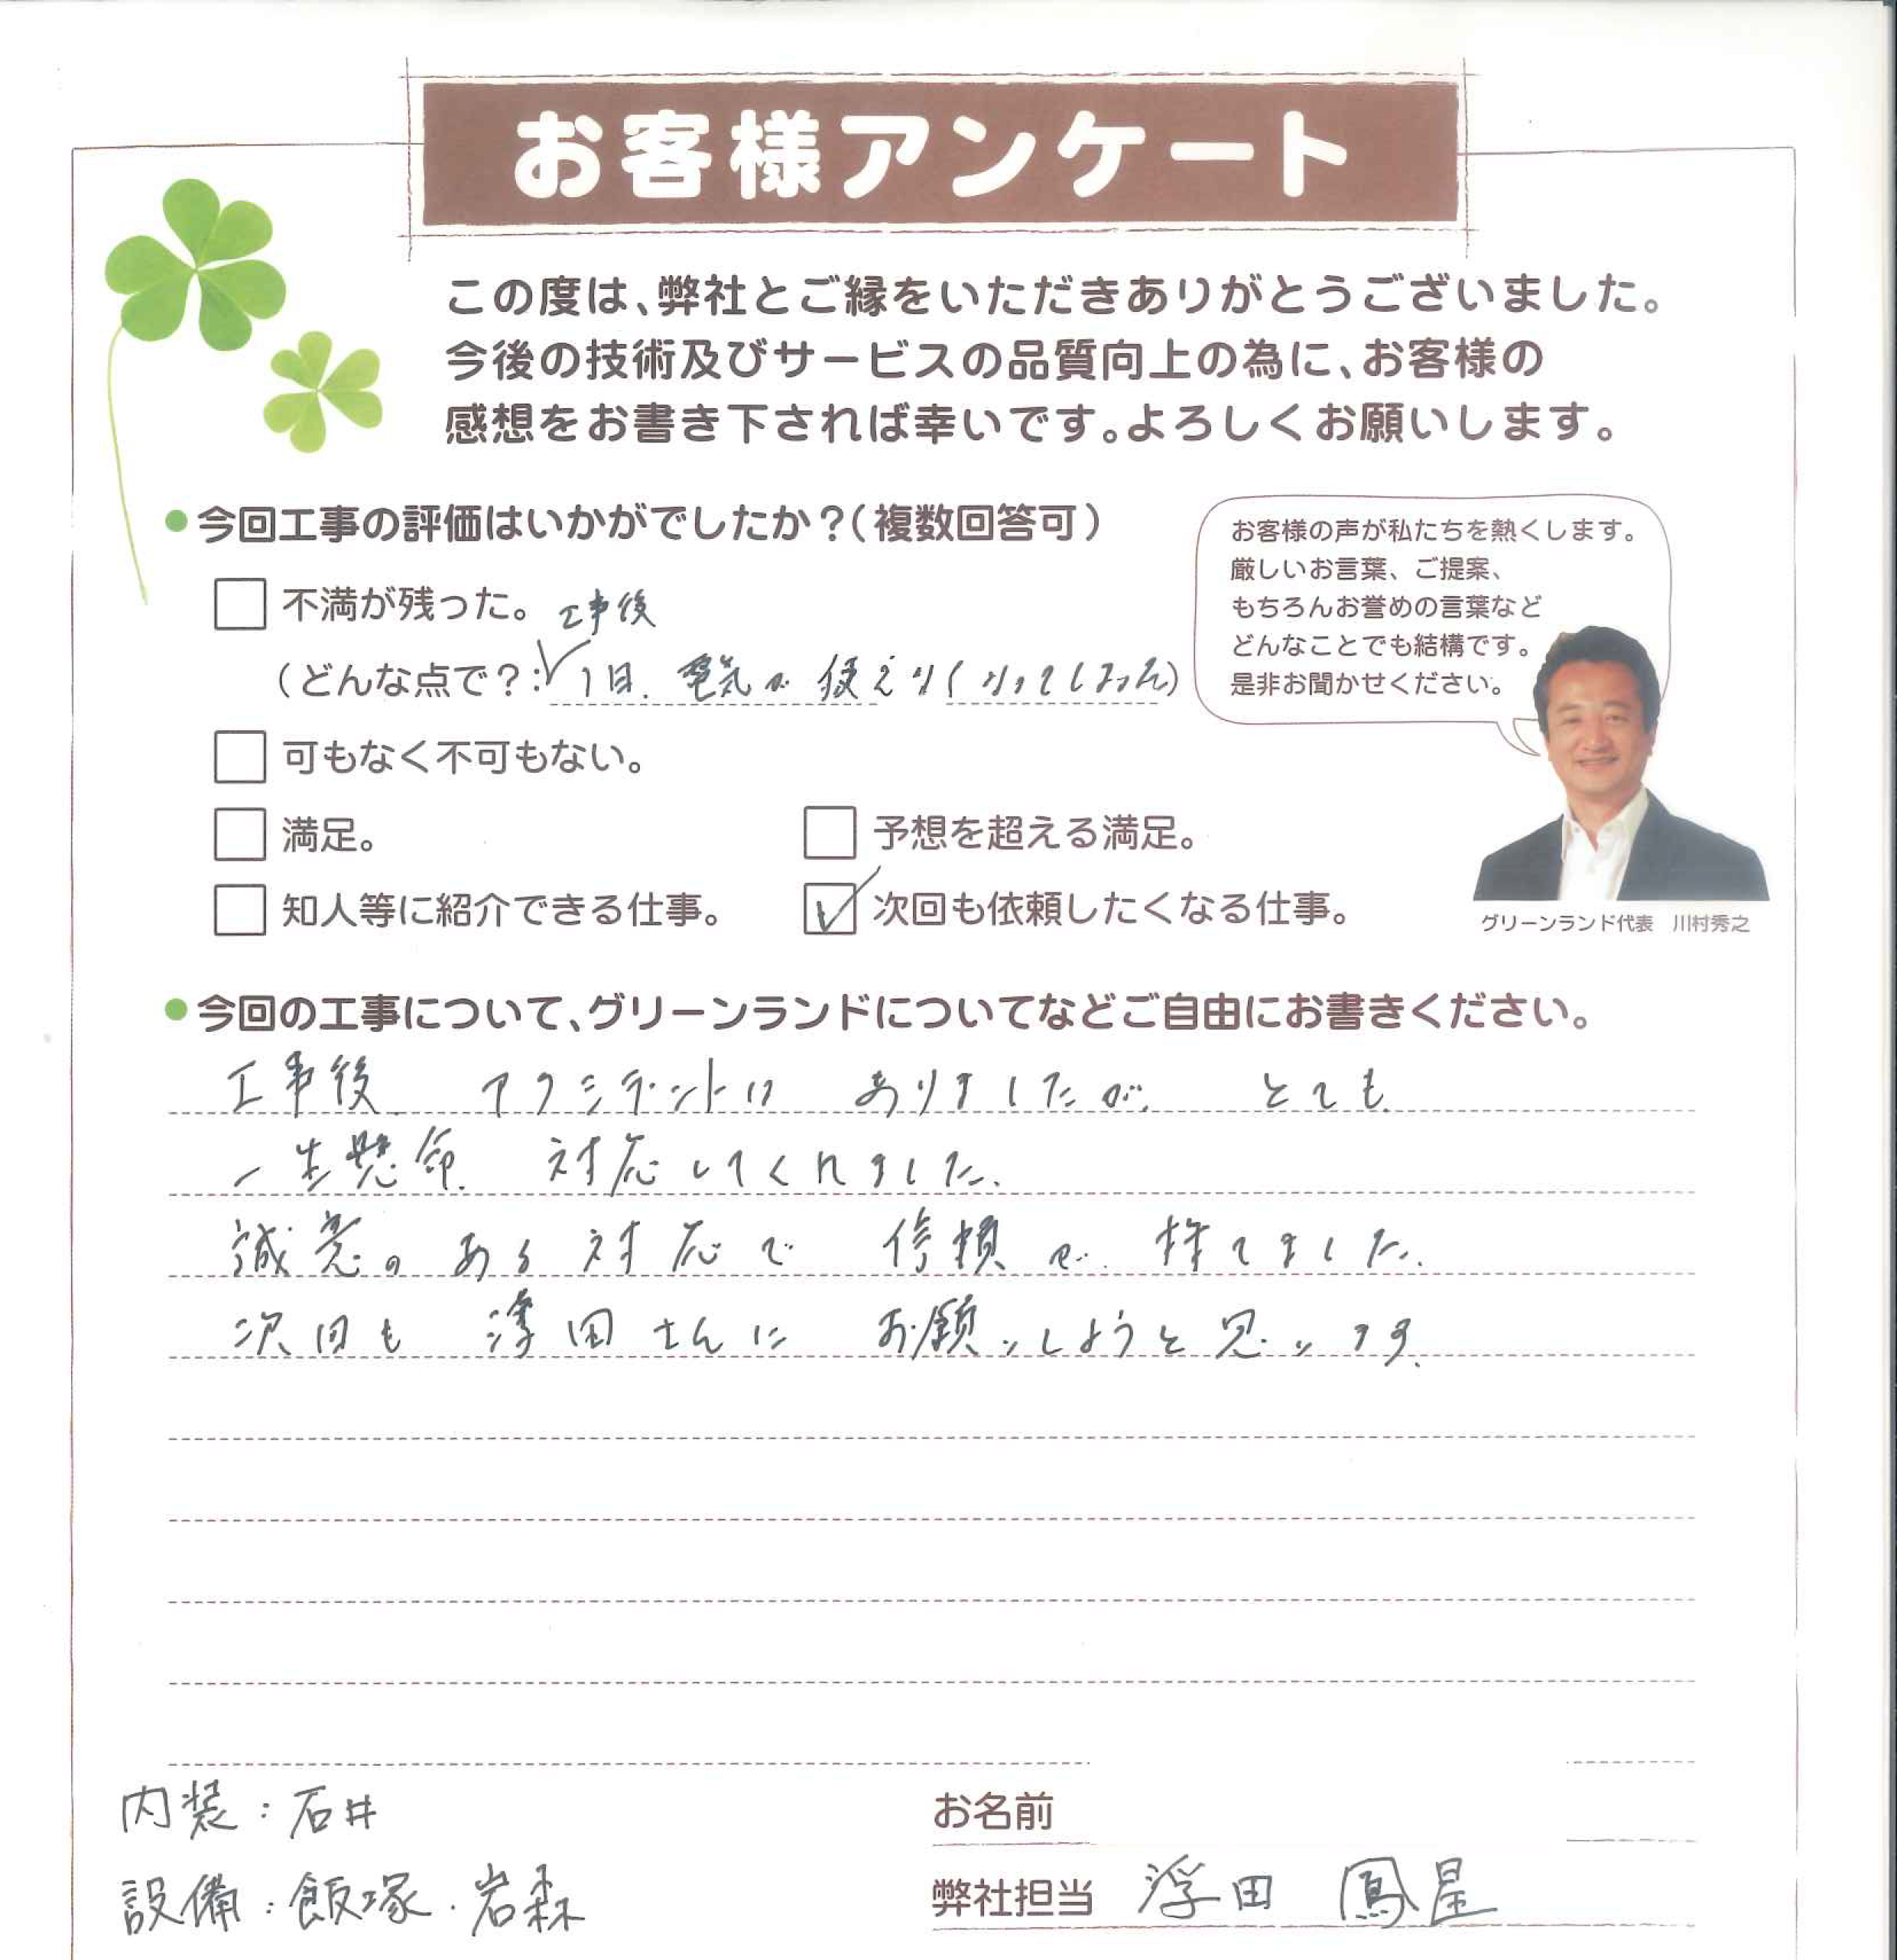 お客様アンケート
この度は、弊社とご縁をいただきありがとうございました。
今後の技術及びサービスの品質向上の為に、お客様の
感想をお書き下されば幸いです。よろしくお願いします。
●今回工事の評価はいかがでしたか？（複数回答可）
お客様の声が私たちを熱くします。
厳しいお言葉、ご提案、
もちろんお誉めの言葉など
どんなことでも結構です。
是非お聞かせください。
不満が残った。 工事後
（どんな点で？: 1日、電気が使えなくなってしまった）
可もなく不可もない。
満足。 予想を超える満足。
知人等に紹介できる仕事。 ✓ 次回も依頼したくなる仕事。
グリーンランド代表 川村秀之
●今回の工事について、グリーンランドについてなどご自由にお書きください。
工事後、アクシデントは ありましたが、とても
一生懸命、対応してくれました。
誠意のある対応で 信頼が 持てました。
次回も 浮田さんに お願いしようと思います。
内装：石井
お名前
設備：飯塚・岩森
弊社担当 浮田 鳳星